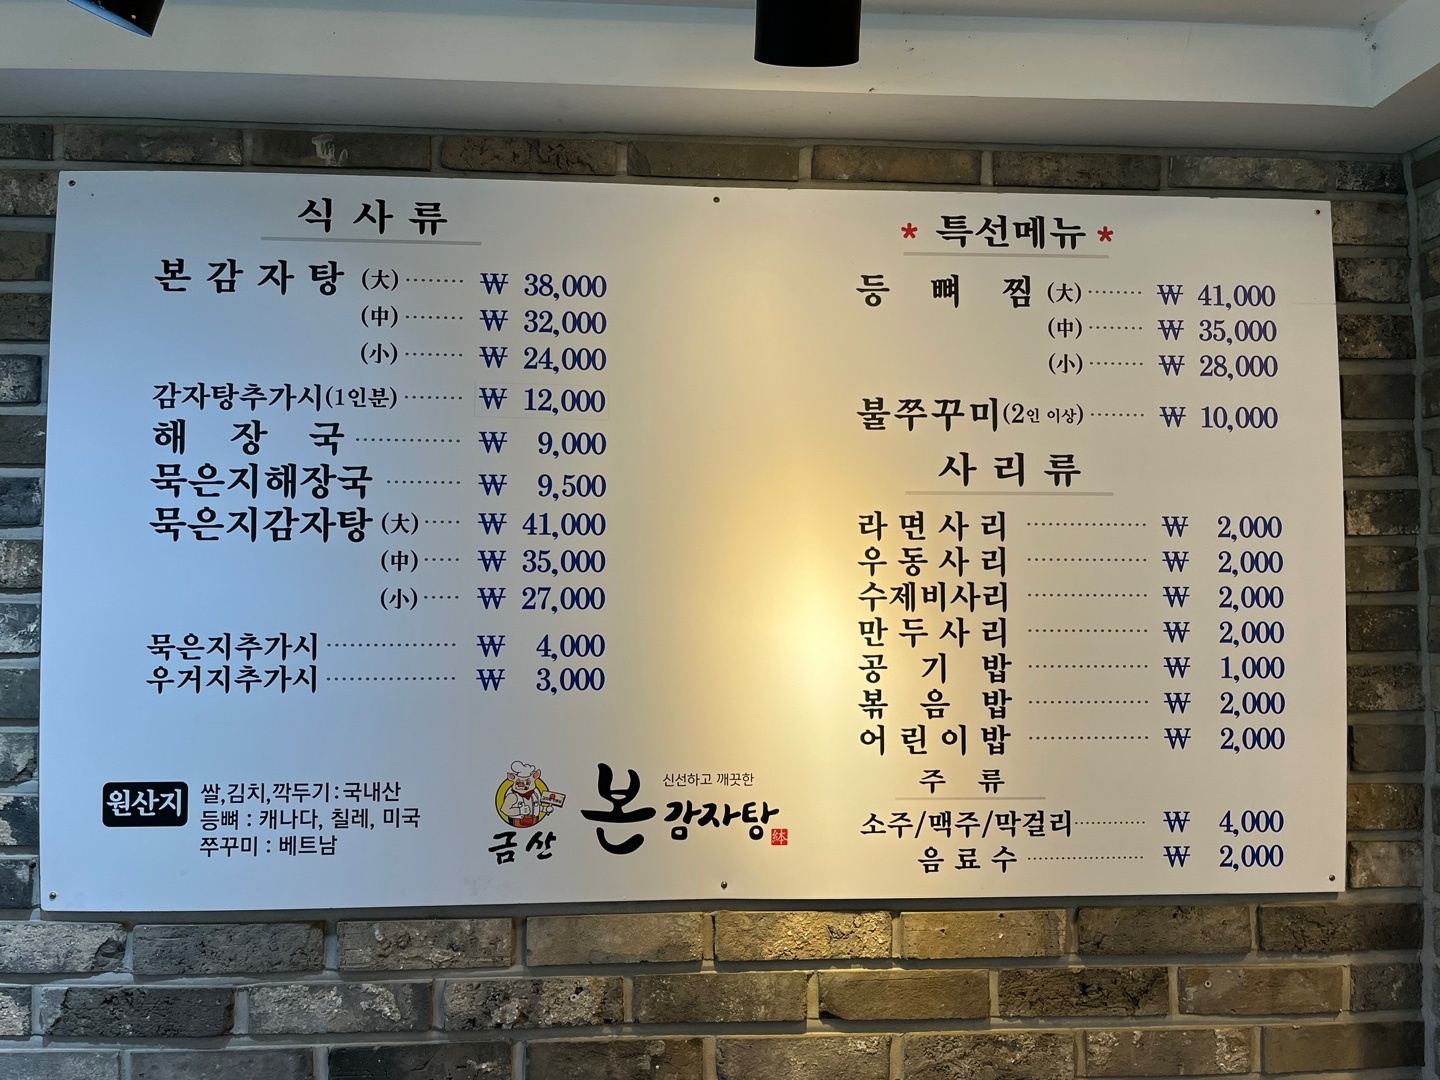 식사류
본감자탕 (大) ········ ₩ 38,000
(中) ········ ₩ 32,000
(小) ········ ₩ 24,000
감자탕추가시(1인분) ········ ₩ 12,000
해장국 ············· ₩ 9,000
묵은지해장국 ·········· ₩ 9,500
묵은지감자탕 (大) ····· ₩ 41,000
(中) ····· ₩ 35,000
(小) ····· ₩ 27,000
묵은지추가시 ················· ₩ 4,000
우거지추가시 ················· ₩ 3,000
원산지
쌀,김치,깍두기 : 국내산
등뼈 : 캐나다, 칠레, 미국
쭈꾸미 : 베트남
금산
신선하고 깨끗한
본감자탕
* 특선메뉴 *
등뼈찜 (大) ······· ₩ 41,000
(中) ······· ₩ 35,000
(小) ······· ₩ 28,000
불쭈꾸미(2인 이상) ······· ₩ 10,000
사리류
라면사리 ················ ₩ 2,000
우동사리 ················ ₩ 2,000
수제비사리 ················ ₩ 2,000
만두사리 ················ ₩ 2,000
공기밥 ················ ₩ 1,000
볶음밥 ················ ₩ 2,000
어린이밥 ················ ₩ 2,000
주류
소주/맥주/막걸리 ············ ₩ 4,000
음료수 ···················· ₩ 2,000